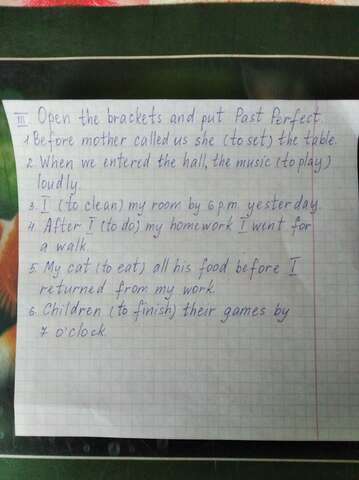 III Open the brackets and put Past Perfect.
1. Before mother called us she (to set) the table.
2. When we entered the hall, the music (to play)
loudly.
3. I (to clean) my room by 6 p.m. yesterday.
4. After I (to do) my homework I went for
a walk.
5. My cat (to eat) all his food before I
returned from my work.
6. Children (to finish) their games by
7 o'clock.